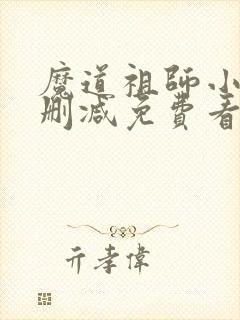 魔道祖师小
删减免费看
亓孝偉